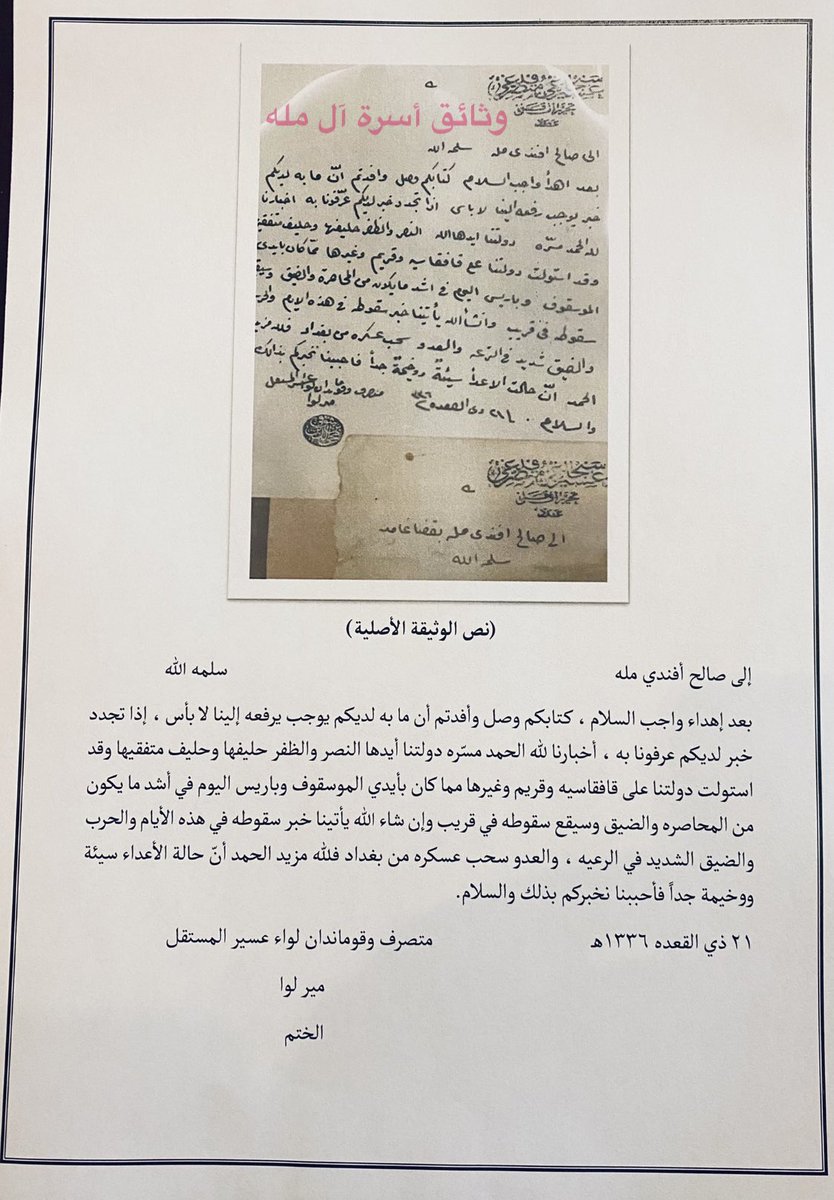 وثائق أسرة آل مله
الى صالح افندى مله سلمه الله
بعد اهدأ واجب السلام كتابكم وصل وافدتم انّ ما به لديكم
خبر يوجب رفعه الينا لا باس اذا تجدد خبر لديكم عرّفونا به اخبارنا
لله الحمد مسرّه دولتنا ايدها الله النصر والظفر حليفها وحليف متفقيها
وقد استولت دولتنا على قافقاسيه وقريم وغيرها مما كان بايدى
الموسقوف وباريس اليوم فى اشد ما يكون من المحاصرة والضيق وسيقع
سقوطه فى قريب وانشأ الله يأتينا خبر سقوطه فى هذه الايام والحرب
والضيق شديد فى الرعيه والعدو سحب عسكره من بغداد فلله مزيد
الحمد انّ حالت الاعدأ سيئةً ووخيمةً جداً فاحببنا نخبركم بذالك
والسلام . ٢١ ذى القعده ٣٣٦
متصرف وقوماندان لواء عسير المستقل
مير لوا
الى صالح افندى مله بقضا غامد
سلمه الله
(نص الوثيقة الأصلية)
إلى صالح أفندي مله سلمه الله
بعد إهداء واجب السلام ، كتابكم وصل وأفدتم أن ما به لديكم يوجب يرفعه إلينا لا بأس ، إذا تجدد
خبر لديكم عرفونا به ، أخبارنا لله الحمد مسرّه دولتنا أيدها النصر والظفر حليفها وحليف متفقيها وقد
استولت دولتنا على قافقاسيه وقريم وغيرها مما كان بأيدي الموسقوف وباريس اليوم في أشد ما يكون
من المحاصره والضيق وسيقع سقوطه في قريب وإن شاء الله يأتينا خبر سقوطه في هذه الأيام والحرب
والضيق الشديد في الرعيه ، والعدو سحب عسكره من بغداد فلله مزيد الحمد أنّ حالة الأعداء سيئة
ووخيمة جداً فأحببنا نخبركم بذلك والسلام.
٢١ ذي القعده ١٣٣٦هـ متصرف وقوماندان لواء عسير المستقل
مير لوا
الختم